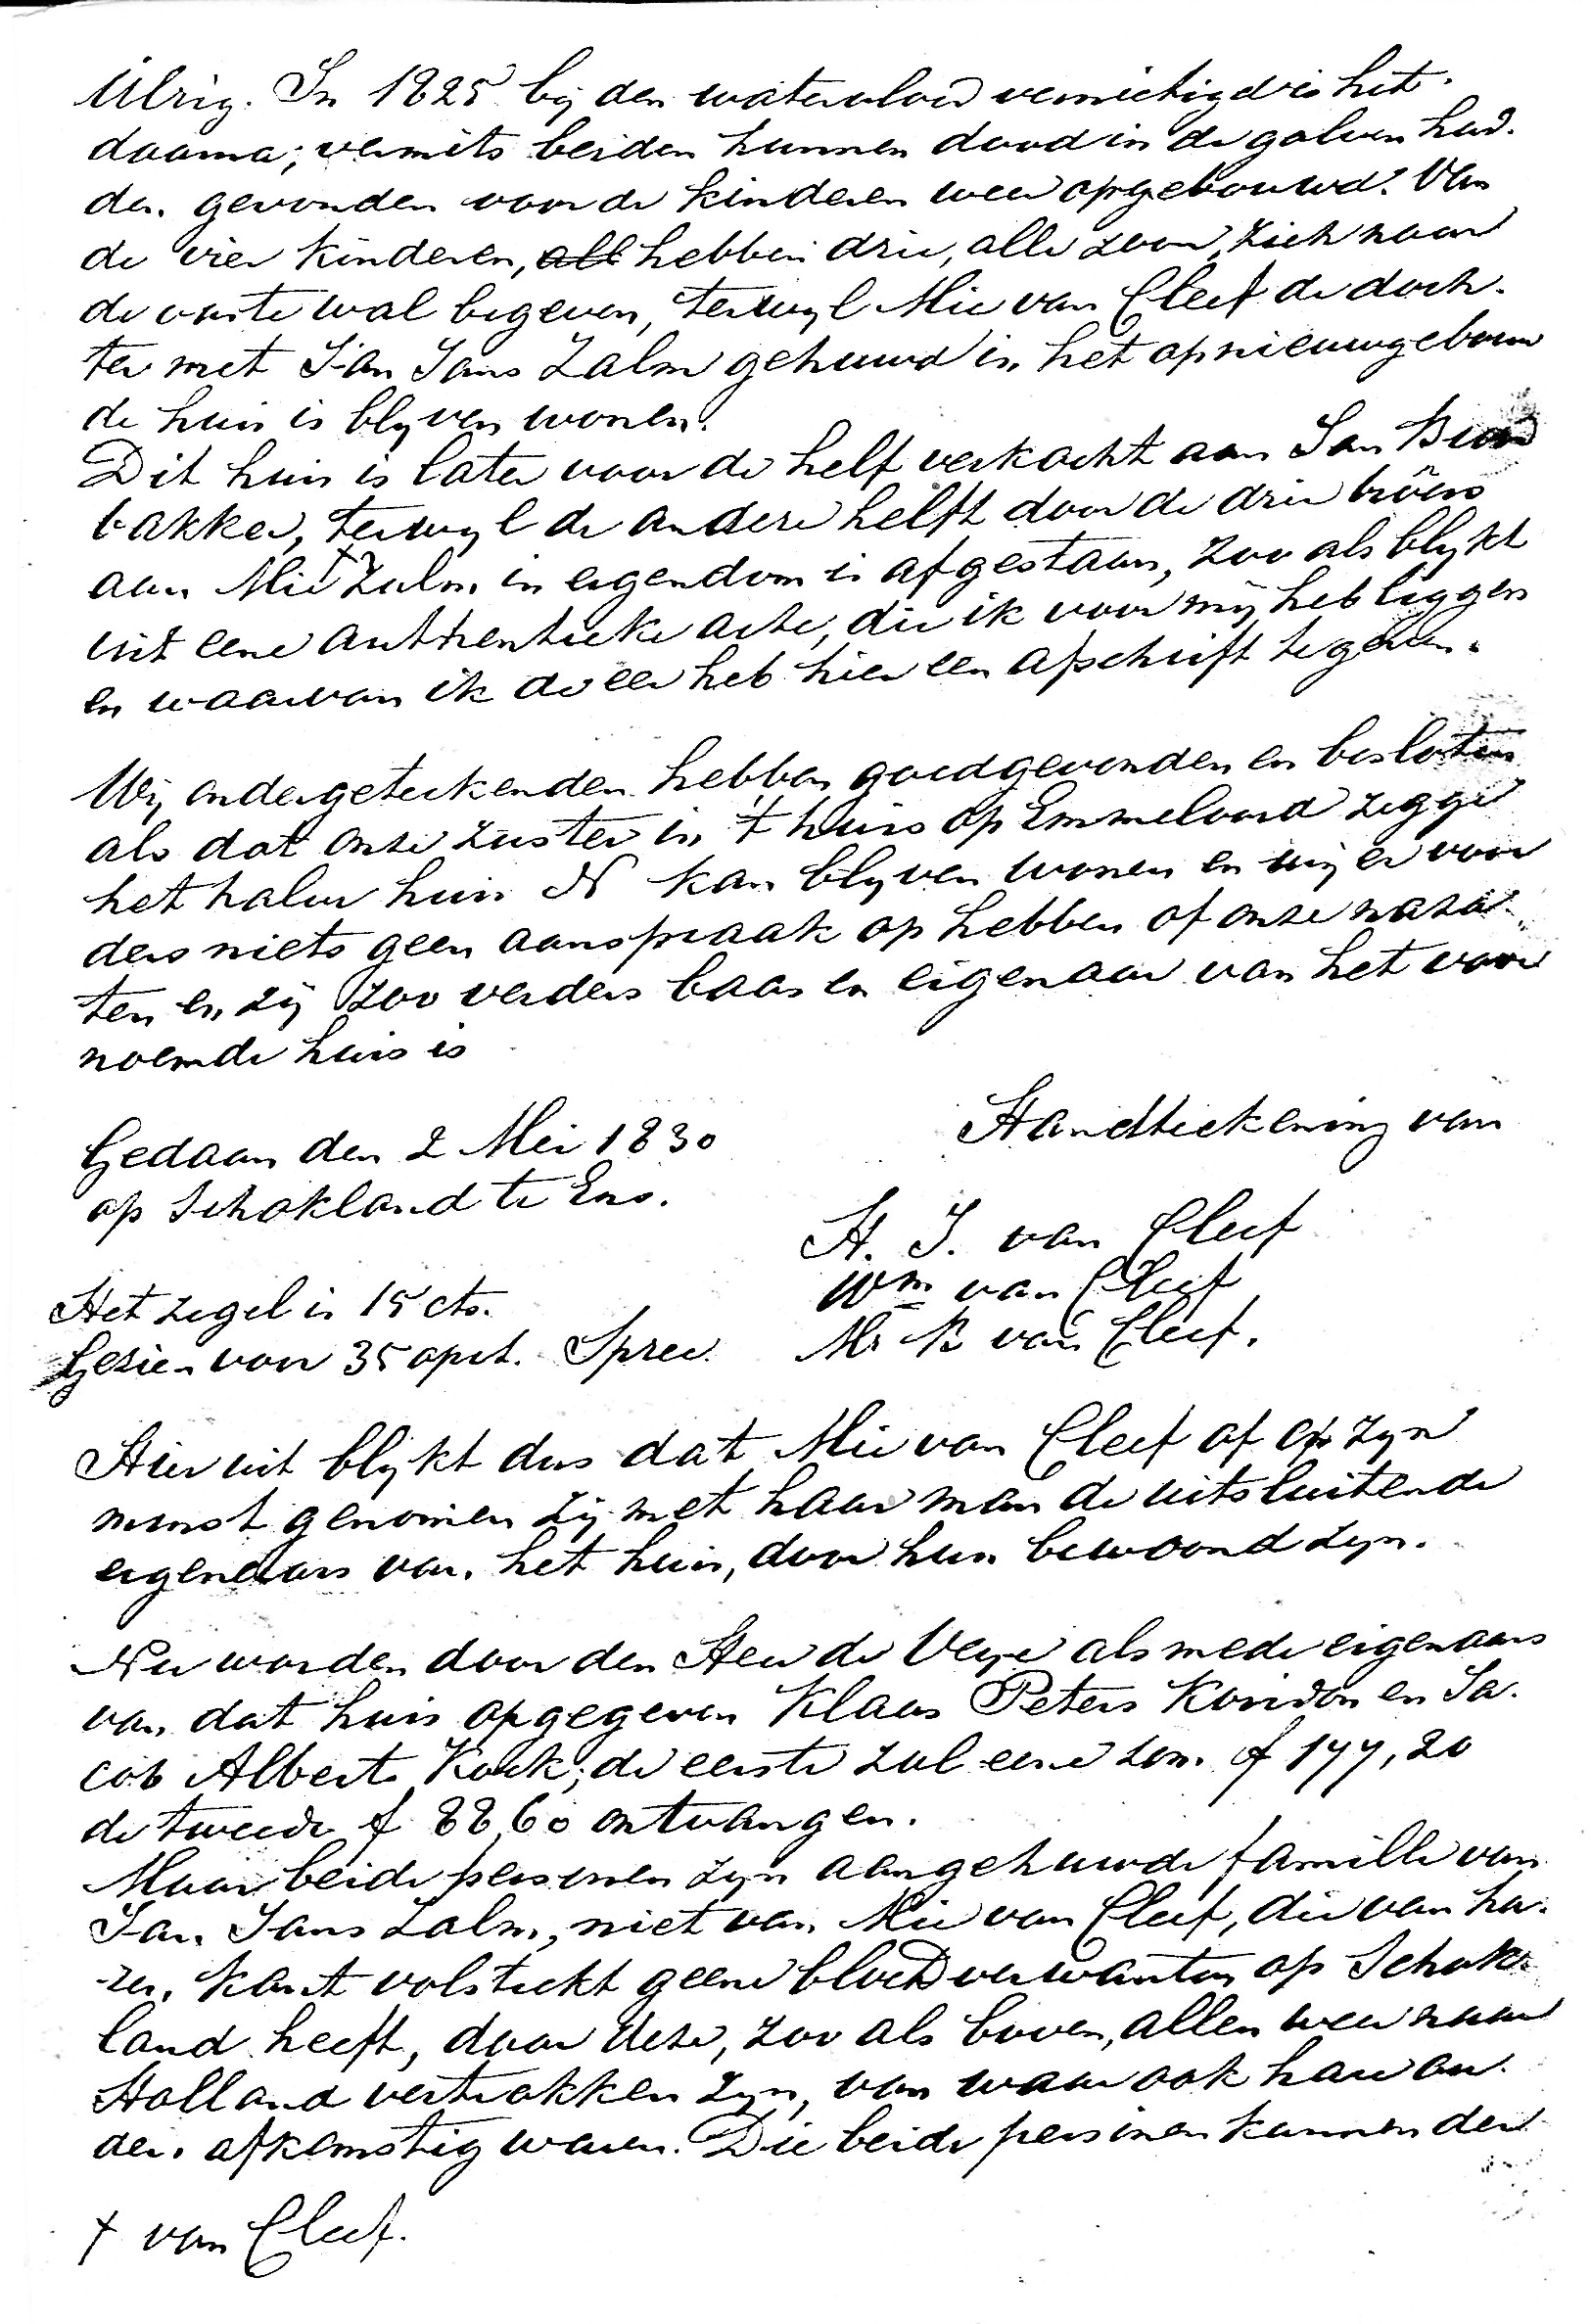 Ulrig. In 1825 bij den watervloed vernietigd is het
daarna; vermits beiden hunnen dood in de golven had-
den gevonden voor de kinderen weer opgebouwd. Van
de vier kinderen, all hebben drie, alle zoon, zich naar
de vaste wal begeven, terwyl Mie van Cleef de doch-
ter met Jan Jans Zalm gehuwd in het opnieuwgebouw
de huis is blyven wonen.
Dit huis is later voor de helft verkocht aan Jan Brood
bakker, terwyl de andere helft door de drie broêrs
aan Mie † Zalm in eigendom is afgestaan, zoo als blykt
uit eene authentieke acte, die ik voor mij heb liggen
en waarvan ik de eer heb hier een afschrift te geven.
Wij ondergeteekenden hebben goedgevonden en besloten
als dat onze zuster in 't huis op Emmeloord zegge
het halve huis N kan blyven wonen en wij er voor
ders niets geen aanspraak op hebben of onze naza-
ten en zij zoo verders baas en eigenaar van het voor
noemde huis is
Gedaan den 2 Mei 1830
op Schokland te Ens.
Handteekening van
H. J. van Cleef
Wm van Cleef
Mr B van Cleef.
Het zegel is 15 cts.
Gezien voor 35 opct. Spree.
Hieruit blykt dus dat Mie van Cleef of op zyn
minst genomen zij met haar man de uitsluitende
eigenaars van het huis, door hun bewoond zyn.
Nu worden door den Heer de Veye als mede eigenaars
van dat huis opgegeven Klaas Peters Koridon en Ja-
cob Alberts Koek; de eerste zal eene som f 177,20
de tweede f 88,60 ontvangen.
Maar beide personen zyn aangehuwde famille van
Jan Jans Zalm, niet van Mie van Cleef, die van ha-
ren kant volstrekt geene bloedverwanten op Schok-
land heeft, daar deze, zoo als boven, allen weer naar
Holland vertrokken zyn, van waar ook haar ou-
ders afkomstig waren. Die beide personen kunnen der
† van Cleef.